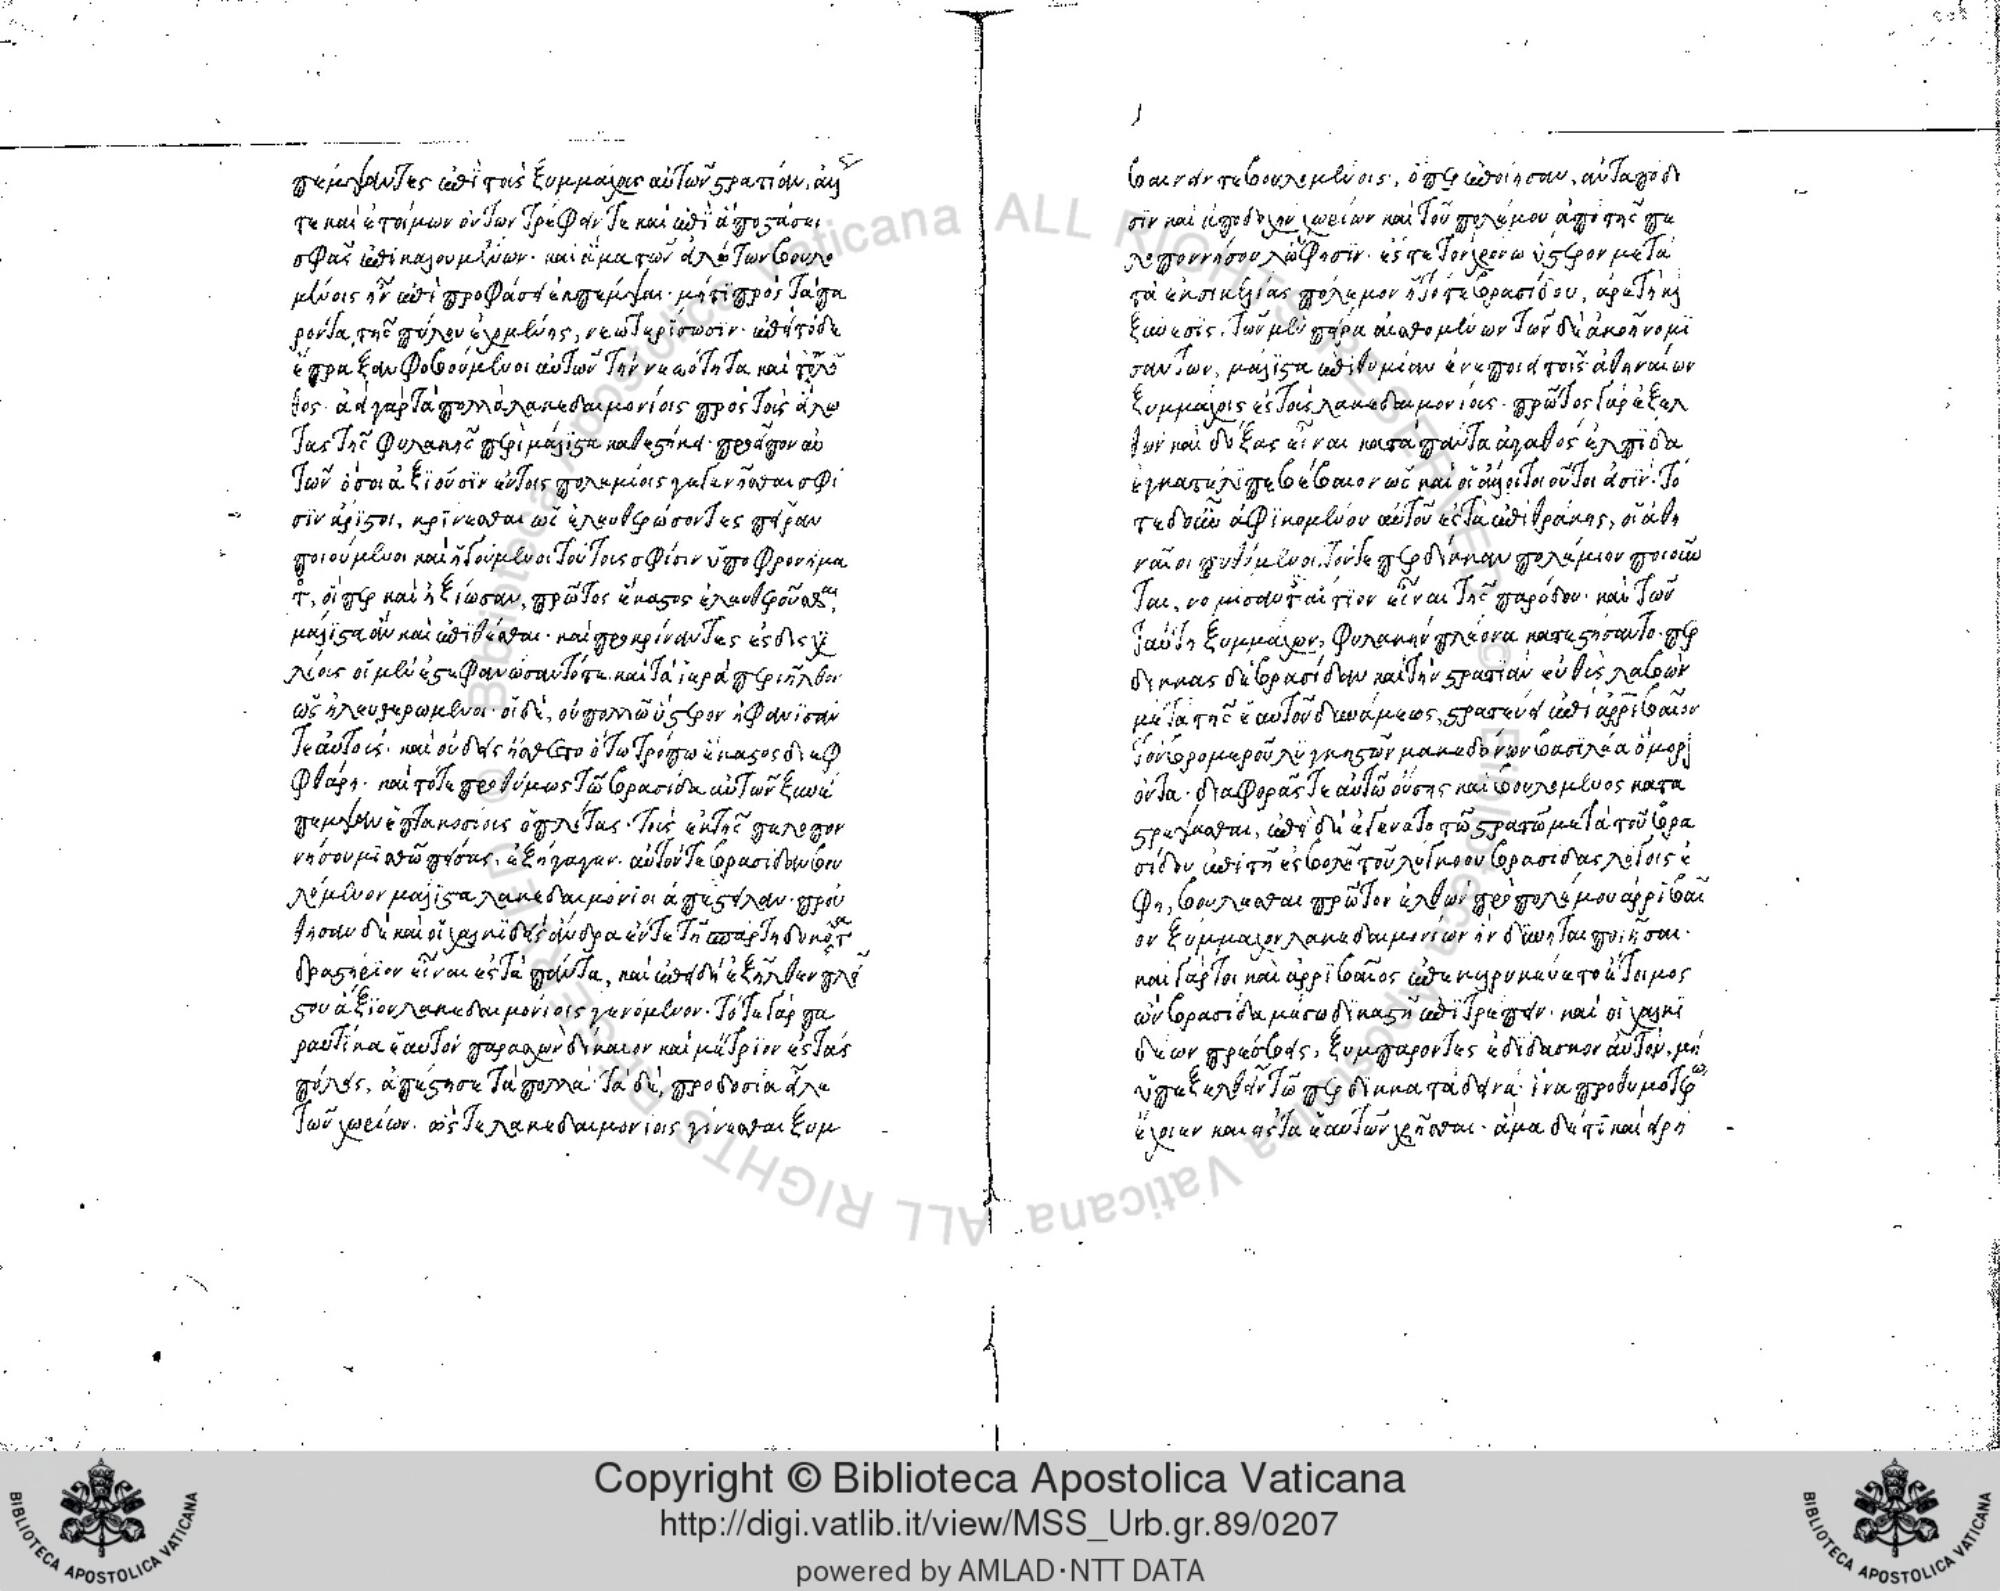 πέμψαντες ἐπὶ τοὺς ξυμμάχους αὐτῶν στρατιὰν, ἄλλως
τε καὶ ἑτοίμων ὄντων τρέφειν τε καὶ ἐπὶ ἀποστάσει
σφᾶς ἐπικαλουμένων. καὶ ἅμα τῶν εἱλώτων βουλο
μένοις ἦν ἐπὶ προφάσει ἐκπέμψαι. μή τι πρὸς τὰ πα
ρόντα τῆς πύλου ἐχομένης, νεωτερίσωσιν. ἐπεὶ τόδε
ἔπραξαν φοβούμενοι αὐτῶν τὴν νεότητα καὶ τὸ πλῆ
θος. ἀεὶ γὰρ τὰ πολλὰ λακεδαιμονίοις πρὸς τοὺς εἵλω
τας τῆς φυλακῆς πέρι μάλιστα καθεστήκει. προεῖπον αὐ
τῶν ὅσοι ἀξιοῦσιν ἐν τοῖς πολεμίοις γεγενῆσθαι σφί
σιν ἄριστοι, κρίνεσθαι ὡς ἐλευθερώσοντες πεῖραν
ποιούμενοι καὶ ἡγούμενοι τούτους σφίσιν ὑπὸ φρονήμα
τος, οἵπερ καὶ ἠξίωσαν, πρῶτος ἕκαστος ἐλευθεροῦσθαι,
μάλιστα ἂν καὶ ἐπιθέσθαι. καὶ προκρίναντες ἐς δισχι
λίους οἱ μὲν ἐστεφανώσαντό τε καὶ τὰ ἱερὰ περιῆλθον
ὡς ἠλευθερωμένοι. οἱ δὲ, οὐ πολλῷ ὕστερον ἠφάνισάν
τε αὐτοὺς. καὶ οὐδεὶς ᾔσθετο ὅτῳ τρόπῳ ἕκαστος διεφ
φθάρη. καὶ τότε προθύμως τῷ βρασίδα αὐτῶν ξυνέ
πεμψαν ἑπτακοσίους ὁπλίτας. τοὺς ἐκ τῆς πελοπον
νήσου μισθῷ πείσας, ἐξήγαγεν. αὐτόν τε βρασίδαν βου
λόμενον μάλιστα λακεδαιμόνιοι ἀπέστειλαν. προὐ
θυμήθησαν δὲ καὶ οἱ χαλκιδεῖς ἄνδρα ἔν τε τῇ σπάρτῃ δοκοῦντα
δραστήριον εἶναι ἐς τὰ πάντα, καὶ ἐπειδὴ ἐξῆλθεν πλεί
στου ἄξιον λακεδαιμονίοις γενόμενον. τό τε γὰρ πα
ραυτίκα ἑαυτὸν παρασχὼν δίκαιον καὶ μέτριον ἐς τὰς
πόλεις, ἀπέστησε τὰ πολλὰ. τὰ δὲ, προδοσίᾳ εἷλε
τῶν χωρίων. ὥστε λακεδαιμονίοις γίνεσθαι ξυμ
βαίνειν τε βουλομένοις, ὅπερ ἐποίησαν, ἀνταπόδο
σιν καὶ ἀποδοχὴν χωρίων καὶ τοῦ πολέμου ἀπὸ τῆς πε
λοποννήσου λώφησιν. ἔς τε τὸν χρόνῳ ὕστερον μετὰ
τὰ ἐκ σικελίας πόλεμον ἡ τότε βρασίδου, ἀρετὴ καὶ
ξύνεσις. τῶν μὲν πείρᾳ αἰσθομένων τῶν δὲ ἀκοῇ νομι
σάντων, μάλιστα ἐπιθυμίαν ἐνεποίει τοῖς ἀθηναίων
ξυμμάχοις ἐς τοὺς λακεδαιμονίους. πρῶτος γὰρ ἐξελ
θὼν καὶ δόξας εἶναι κατὰ πάντα ἀγαθὸς ἐλπίδα
ἐγκατέλιπε βέβαιον ὡς καὶ οἱ ἄλλοι τοιοῦτοι εἰσίν. τό
τε δ᾽ οὖν ἀφικομένου αὐτοῦ ἐς τὰ ἐπὶ θράκης, οἱ ἀθη
ναῖοι πυθόμενοι, τόν τε περδίκκαν πολέμιον ποιοῦν
ται, νομίσαντες αἴτιον εἶναι τῆς παρόδου. καὶ τῶν
ταύτῃ ξυμμάχων, φυλακὴν πλέονα κατεστήσαντο. περ
δίκκας δὲ βρασίδαν καὶ τὴν στρατιὰν εὐθὺς λαβὼν
μετὰ τῆς ἑαυτοῦ δυνάμεως, στρατεύει ἐπὶ ἀρριβαῖον
τὸν βρομεροῦ λυγκηστῶν μακεδόνων βασιλέα ὅμορ
ὄντα. διαφορᾶς τε αὐτῷ οὔσης καὶ βουλόμενος κατα
στρέψασθαι, ἐπεὶ δὲ ἐγένετο τῷ στρατῷ μετὰ τοῦ βρα
σίδου ἐπὶ τῇ ἐσβολῇ τοῦ λύγκου βρασίδας λόγοις ἔ
φη, βούλεσθαι πρῶτον ἐλθὼν πρὸ πολέμου ἀρριβαῖ
ον ξύμμαχον λακεδαιμονίων ἢν δύνηται ποιῆσαι.
καὶ γάρ τι καὶ ἀρριβαῖος ἐπεκηρυκεύετο ἑτοῖμος
ὢν βρασίδα μέσῳ δικαστῇ ἐπιτρέπειν. καὶ οἱ χαλκι
δέων πρέσβεις, ξυμπαρόντες ἐδίδασκον αὐτὸν, μὴ
ὑπεξελθεῖν τῷ περδίκκᾳ τὰ δεινά. ἵνα προθυμοτέρῳ
ἔχοιεν καὶ ἐς τὰ ἑαυτῶν χρῆσθαι. ἅμα δέ τι καὶ εἰρή
Copyright © Biblioteca Apostolica Vaticana
http://digi.vatlib.it/view/MSS_Urb.gr.89/0207
powered by AMLAD·NTT DATA
BIBLIOTECA APOSTOLICA VATICANA
BIBLIOTECA APOSTOLICA VATICANA